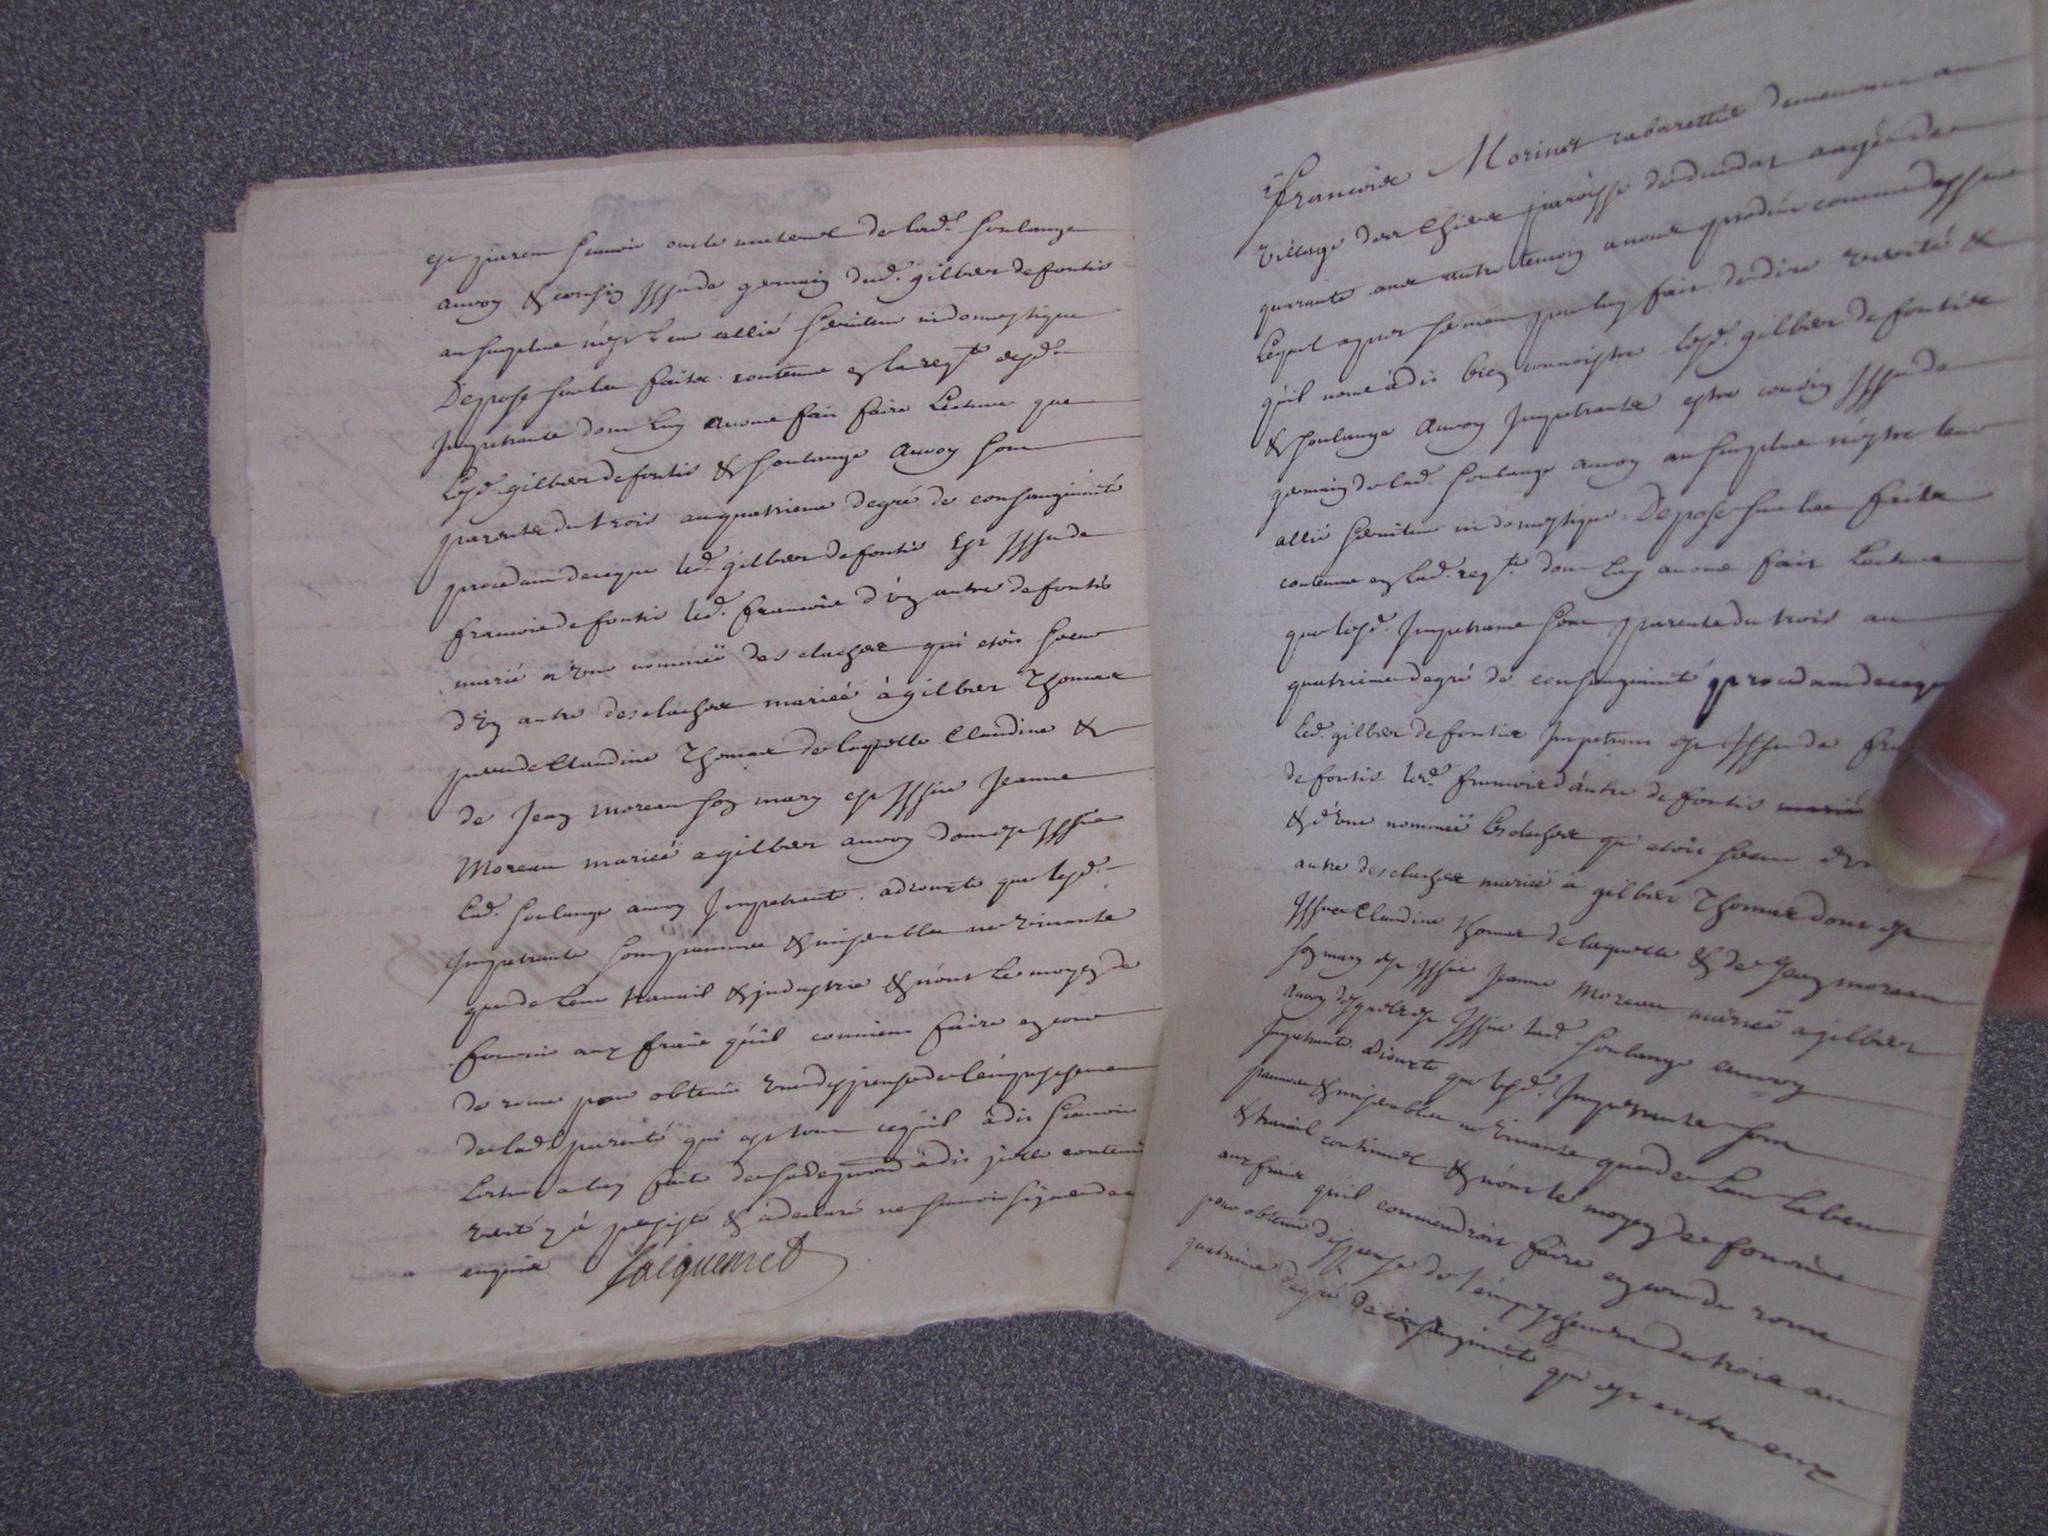 est parent scavoir oncle maternel de lad. Soulange
auvoy & cousin issu de germain dud. gilbert defontis
au surplus n'est leur allié serviteur ni domestique
Depose sur les faits contenue en la reqte desd.
Impetrants dont luy avons fait faire Lecture que
Lesd. gilbert defontis & soulange auvoy sont
parents du trois au quatrieme degré de consanguinité
procedant de ce que led. gilbert defontis Est issu de
francois defontis led. francois d'un autre defontis
marié a une nommeé desclachet qui etoit soeur
d'un autre desclachet marieé à gilbert Thomas
pere de Claudine Thomas de laquelle Claudine &
de Jean moreau son mary est issue Jeanne
Moreau marieé a gilbert auvoy dont est issue
lad. soulange auvoy Impetrante adjoute que lesd.
Impetrants sont pauvres & miserables ne vivants
que de leur travail & industrie & n'ont le moyen de
fournir aux frais qu'il convient faire en cour
de rome pour obtenir une dispense de l'empeschement
de lad. parenté qui est tout ce qu'il à dit scavoir
Lecture a luy faite de sa deposition à dit icelle contenir
verité y à persisté & à declaré ne scavoir signer de ce
enquis Jacquemet
francois Morinet cabarettier demeurant au
village des Chiers paroisse de durdat aagé de
quarante ans autre temoin a nous produit comme dessus
Lequel apres serment par luy fait de dire verité &
qu'il nous à dit bien connoistre lesd. gilbert defontis
& soulange auvoy Impetrants estre cousin issu de
germain de lad. soulange auvoy au surplus n'estre leur
allié serviteur ni domestique Depose sur les faits
contenue en lad. reqte dont luy avons fait Lecture
que lesd. Impetrants sont parents du trois au
quatrieme degré de consanguinité procedant de ce que
led. gilbert defontis Impetrant est issu de
defontis led. francois d'autre defontis marié
& d'une nommeé desclachet qui etoit soeur
autre desclachet marieé à gilbert Thomas dont est
issue Claudine Thomas de laquelle & de Jean moreau
son mary est issue Jeanne Moreau marieé a gilbert
auvoy desquels est issue lad. soulange auvoy
Impetrante adjoute que lesd. Impetrants sont
pauvres & miserables ne vivants que de leur labeur
& travail continuel & n'ont le moyen de fournir
aux frais qu'il conviendroit faire en cour de rome
pour obtenir dispense de l'empeschement du trois au
quatrieme degré de consanguinité qui est entre eux